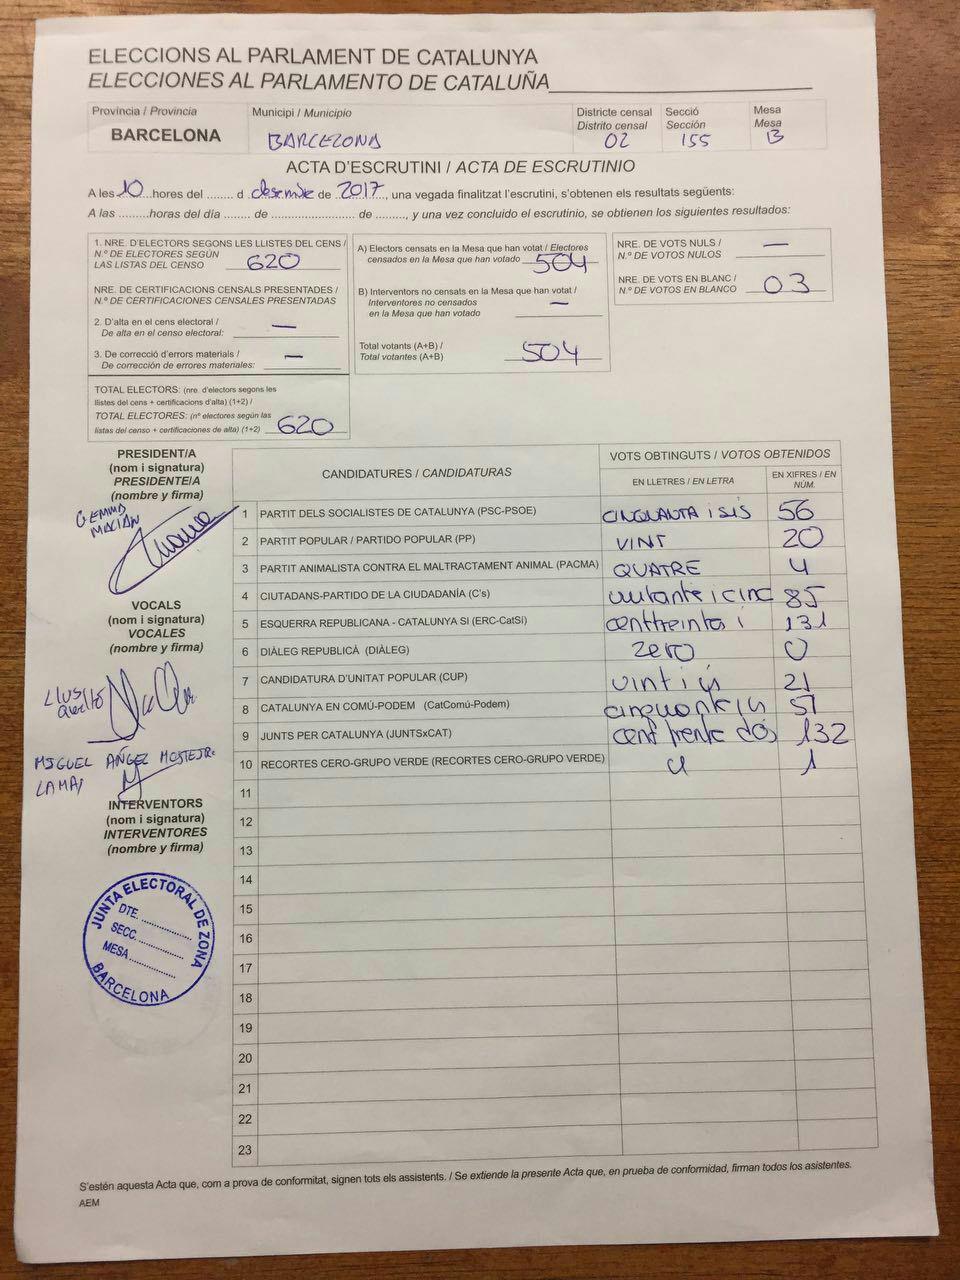 ELECCIONS AL PARLAMENT DE CATALUNYA
ELECCIONES AL PARLAMENTO DE CATALUÑA
Província / Provincia
BARCELONA
Municipi / Municipio
BARCELONA
Districte censal
Distrito censal
02
Secció
Sección
155
Mesa
Mesa
B
ACTA D'ESCRUTINI / ACTA DE ESCRUTINIO
A les 10 hores del ........ d desembre de 2017, una vegada finalitzat l'escrutini, s'obtenen els resultats següents:
A las .........horas del día ........ de ........................ de ........., y una vez concluido el escrutinio, se obtienen los siguientes resultados:
1. NRE. D'ELECTORS SEGONS LES LLISTES DEL CENS /
N.º DE ELECTORES SEGÚN
LAS LISTAS DEL CENSO 620
NRE. DE CERTIFICACIONS CENSALS PRESENTADES /
N.º DE CERTIFICACIONES CENSALES PRESENTADAS
2. D'alta en el cens electoral /
De alta en el censo electoral: —
3. De correcció d'errors materials /
De corrección de errores materiales: —
TOTAL ELECTORS: (nre. d'electors segons les
llistes del cens + certificacions d'alta) (1+2) /
TOTAL ELECTORES: (nº electores según las
listas del censo + certificaciones de alta) (1+2) 620
A) Electors censats en la Mesa que han votat / Electores
censados en la Mesa que han votado 504
B) Interventors no censats en la Mesa que han votat /
Interventores no censados
en la Mesa que han votado —
Total votants (A+B) /
Total votantes (A+B) 504
NRE. DE VOTS NULS /
N.º DE VOTOS NULOS —
NRE. DE VOTS EN BLANC /
N.º DE VOTOS EN BLANCO 03
PRESIDENT/A
(nom i signatura)
PRESIDENTE/A
(nombre y firma)
GEMMA
MACIAN
VOCALS
(nom i signatura)
VOCALES
(nombre y firma)
MIGUEL AÑGEL
INTERVENTORS
(nom i signatura)
INTERVENTORES
(nombre y firma)
JUNTA ELECTORAL DE ZONA
DTE. ..............
SECC. ..............
MESA ..............
BARCELONA
CANDIDATURES / CANDIDATURAS
VOTS OBTINGUTS / VOTOS OBTENIDOS
EN LLETRES / EN LETRA
EN XIFRES / EN
NÚM.
1 PARTIT DELS SOCIALISTES DE CATALUNYA (PSC-PSOE) CINQUANTA i SIS 56
2 PARTIT POPULAR / PARTIDO POPULAR (PP) VINT 20
3 PARTIT ANIMALISTA CONTRA EL MALTRACTAMENT ANIMAL (PACMA) QUATRE 4
4 CIUTADANS-PARTIDO DE LA CIUDADANÍA (C's) vuitanta i cinc 85
5 ESQUERRA REPUBLICANA - CATALUNYA SI (ERC-CatSí) cent treinta i 131
6 DIÀLEG REPUBLICÀ (DIÀLEG) zero 0
7 CANDIDATURA D'UNITAT POPULAR (CUP) vint i 21
8 CATALUNYA EN COMÚ-PODEM (CatComú-Podem) 51
9 JUNTS PER CATALUNYA (JUNTSxCAT) cent trenta dós 132
10 RECORTES CERO-GRUPO VERDE (RECORTES CERO-GRUPO VERDE) u 1
11
12
13
14
15
16
17
18
19
20
21
22
23
S'estén aquesta Acta que, com a prova de conformitat, signen tots els assistents. / Se extiende la presente Acta que, en prueba de conformidad, firman todos los asistentes.
AEM